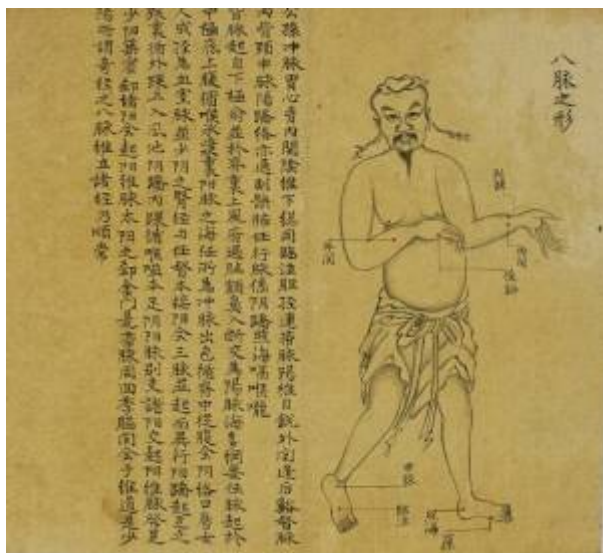 八脉之形
公孫冲脉胃心胷内関陰維下緫同臨泣胆経連帯脉陽維目銳外関逢后谿督脉
内眥頸申脉陽蹻絡亦通列缺肺任行肺係陰蹻照海膈喉嚨
督脉起自下極腧並於脊裏上風府過脳額鼻入齗交為陽脉海者綱要任脉起於
中極底上腹循喉承漿裏陰脉之海任所為冲脉出包循脊中従腹会陰絡口唇女
人成経為血室脉並少陰之腎経与任督本於陰会三脉並起而異行陽蹻起足之
跟裏循外踝上入風池陰蹻内踝循喉嗌本足陰陽脉别支諸陰交起陰維脉發足
少陰築賓郄諸陽会起陽維脉太陽之郄金門是帯脉周回季脇間会于維道足少
陽所謂奇経之八脉維系諸経乃順常
列缺
内関
外関
後谿
申脉
臨泣
照海
公孫